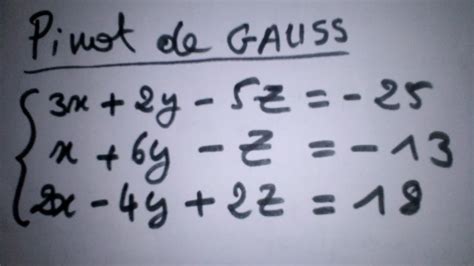 Pivot de GAUSS
3x + 2y - 5z = - 25
x + 6y - z = - 13
2x - 4y + 2z = 18